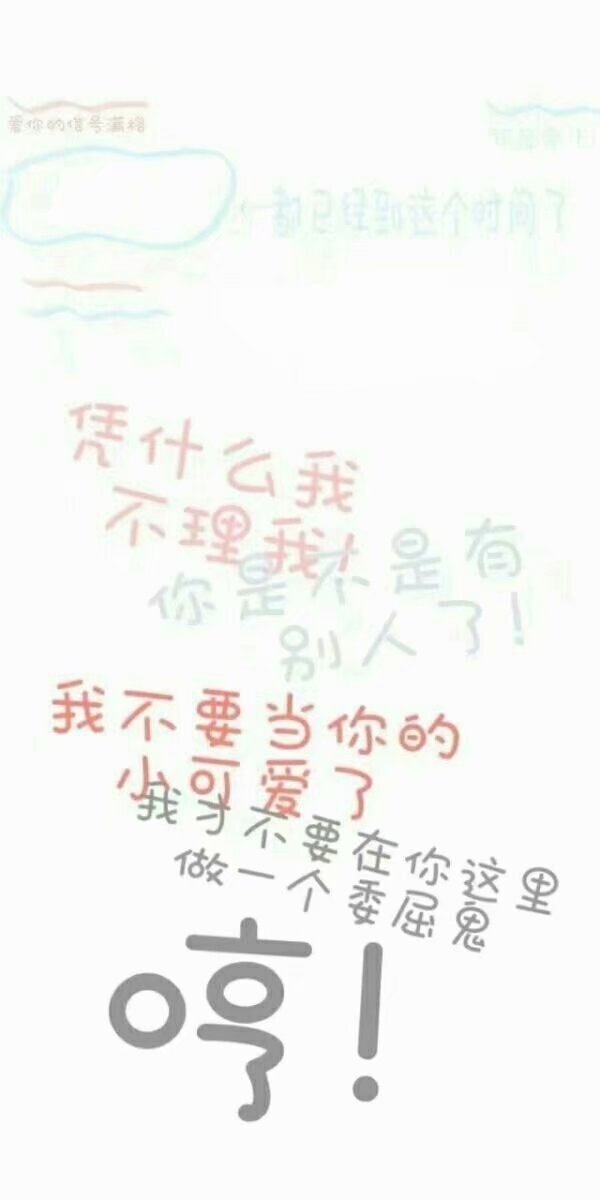 爱你的信号满格
都已经到这个时间了
凭什么我
不理我！
你是不是有
别人了！
我不要当你的
小可爱了
我才不要在你这里
做一个委屈鬼
哼！